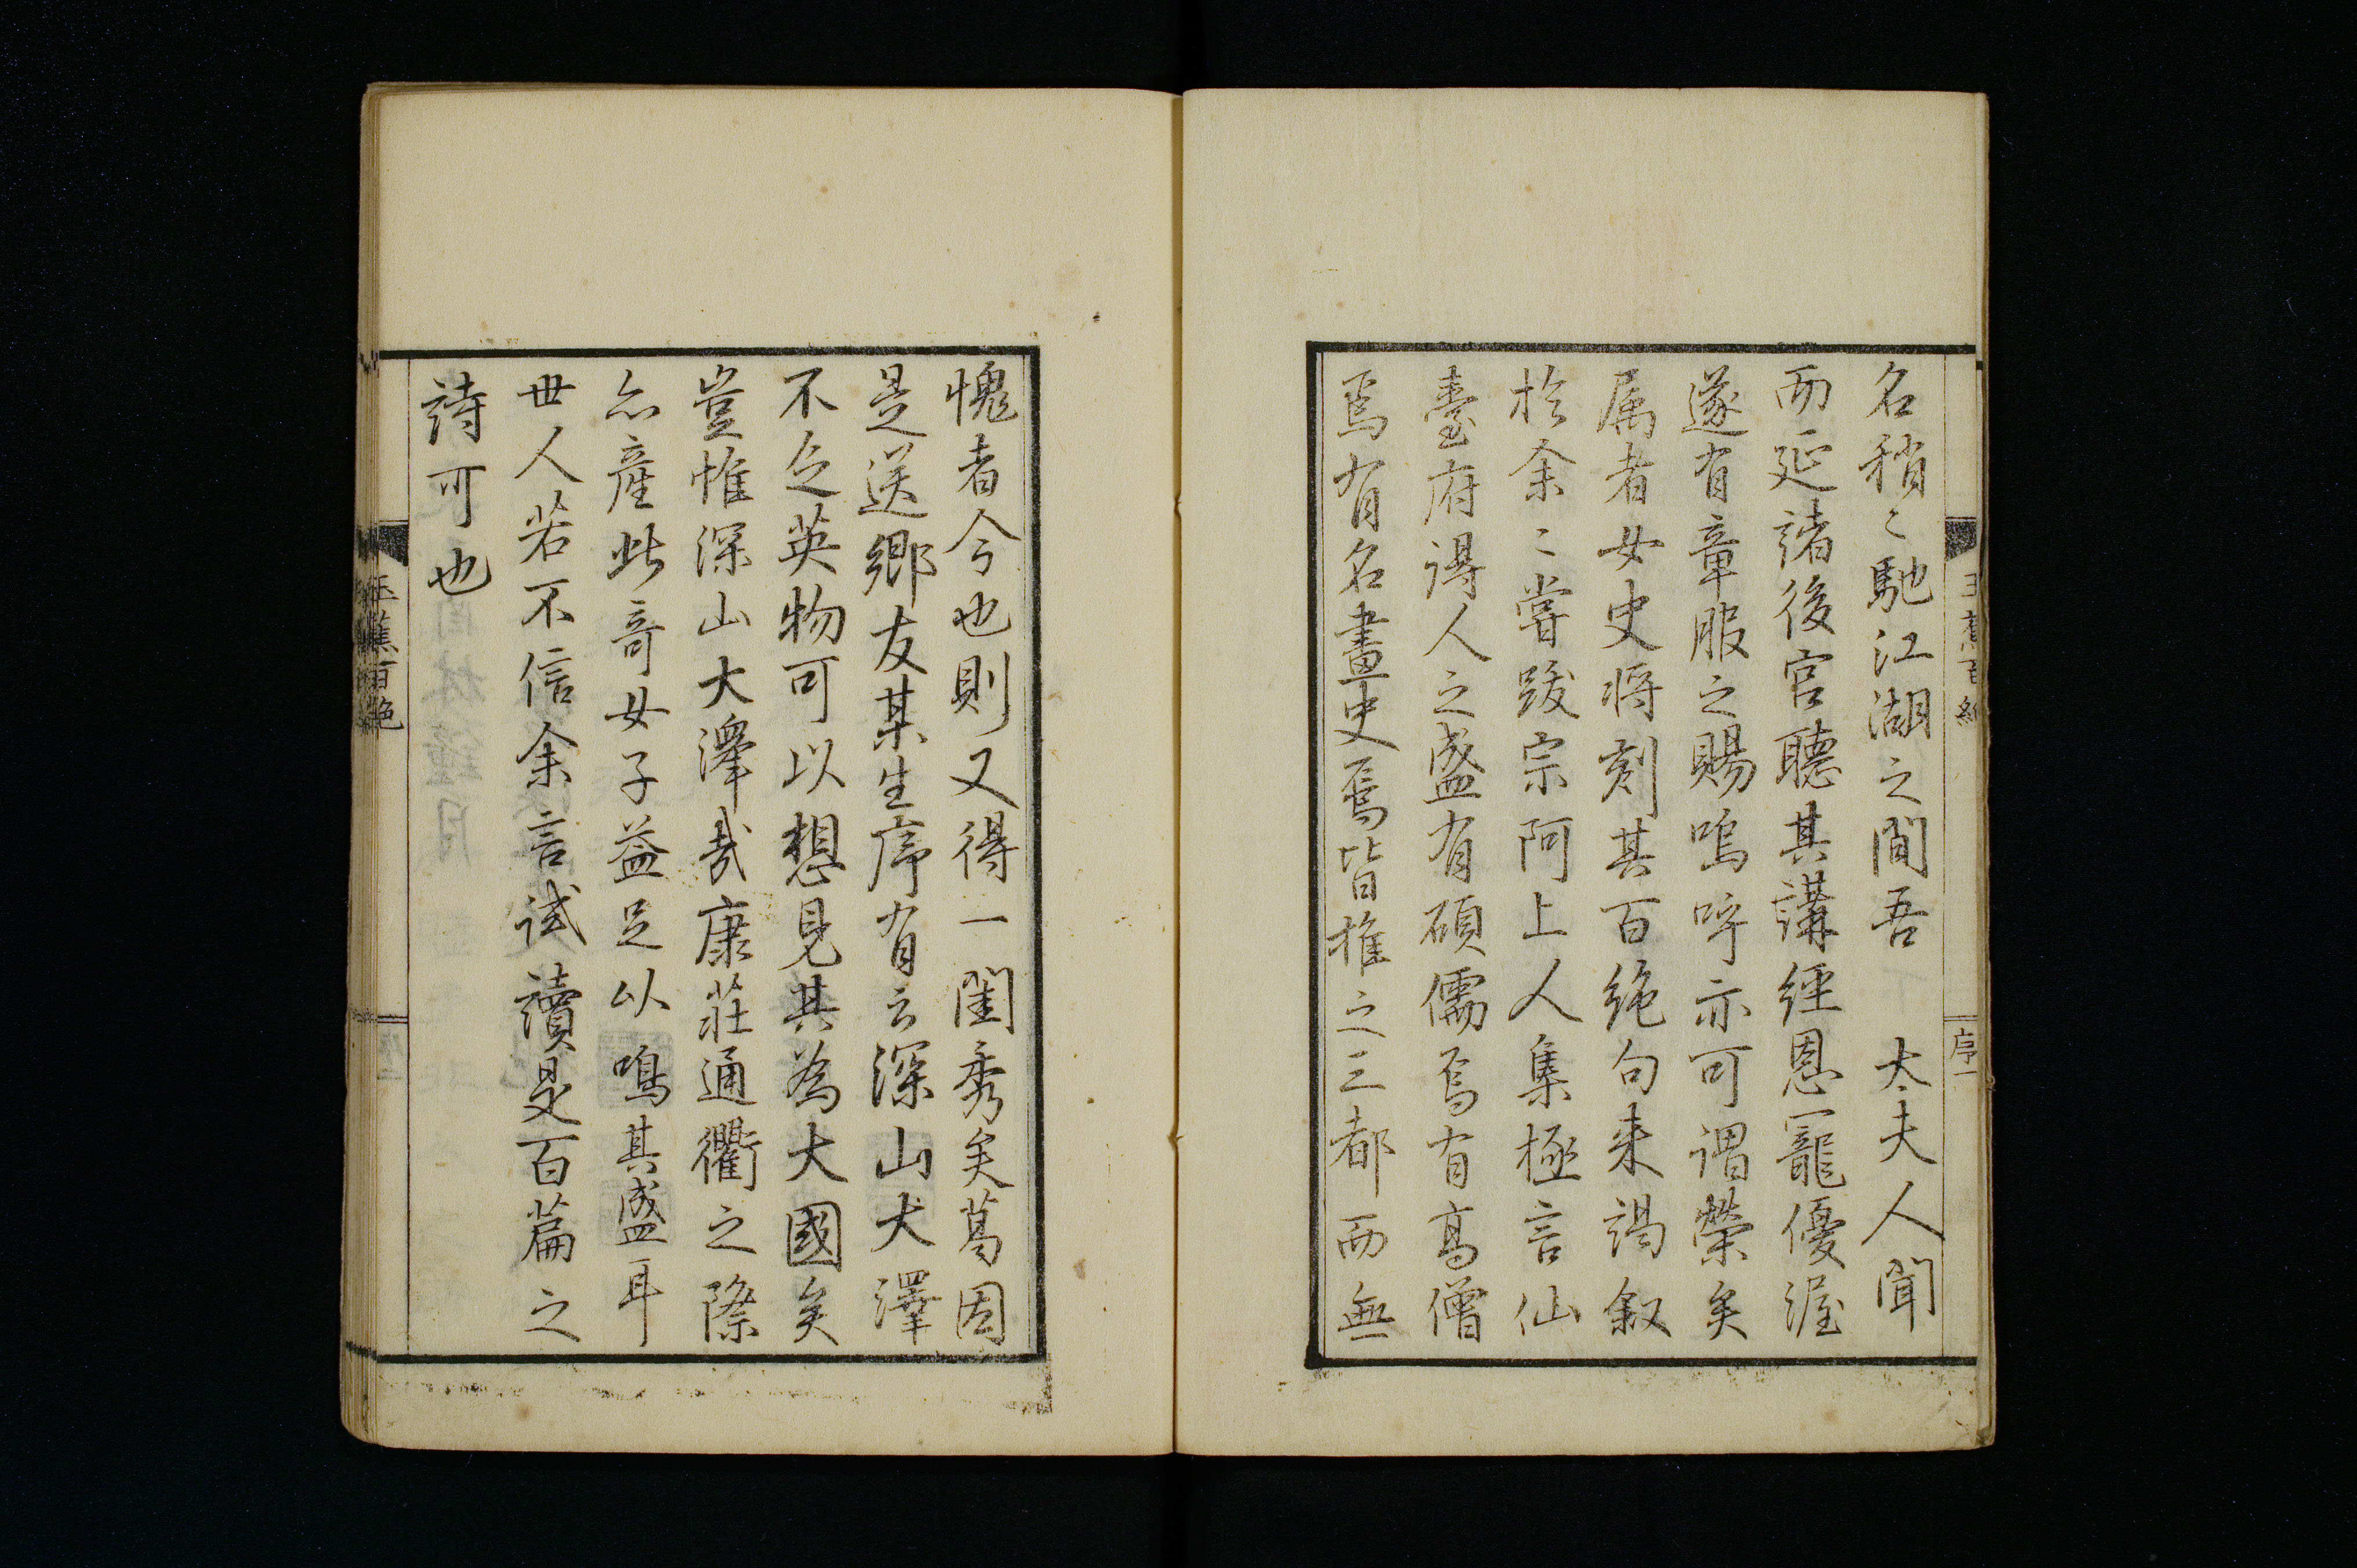 名稍〻馳江湖之間吾　太夫人聞
而延諸後宮聽其講經恩寵優渥
遂有章服之賜嗚呼亦可謂榮矣
属者女史將刻其百絶句来謁叙
於余〻嘗跋宗阿上人集極言仙
臺府得人之盛有碩儒焉有高僧
焉有名畫史焉皆推之三都而無
序一
愧者今也則又得一閨秀矣葛因
是送鄉友某生序有云深山大澤
不乏英物可以想見其為大國矣
豈惟深山大澤哉康莊通衢之際
亦產此奇女子益足以鳴其盛耳
世人若不信余言試讀是百篇之
詩可也
玉蕉百絶